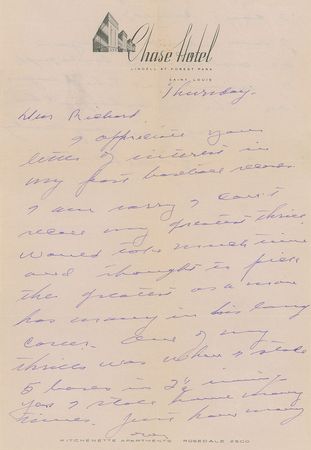 Chase Hotel
LINDELL AT FOREST PARK
SAINT LOUIS
Thursday.
Dear Richard.
I appreciate your
letter of interest in
my past baseball record.
I am sorry I can't
recall my greatest thrill
would take much time
and thought to pick
the greatest as a man
has many in his long
career. One of my
thrills was when I stole
5 bases in 2½ innings
yes I stole home many
times. Just how many
KITCHENETTE APARTMENTS ROSEDALE 2500
over